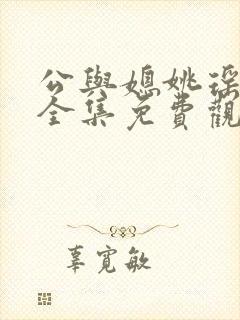 公與媳姚瑶
全集免費觀
辜寬敏